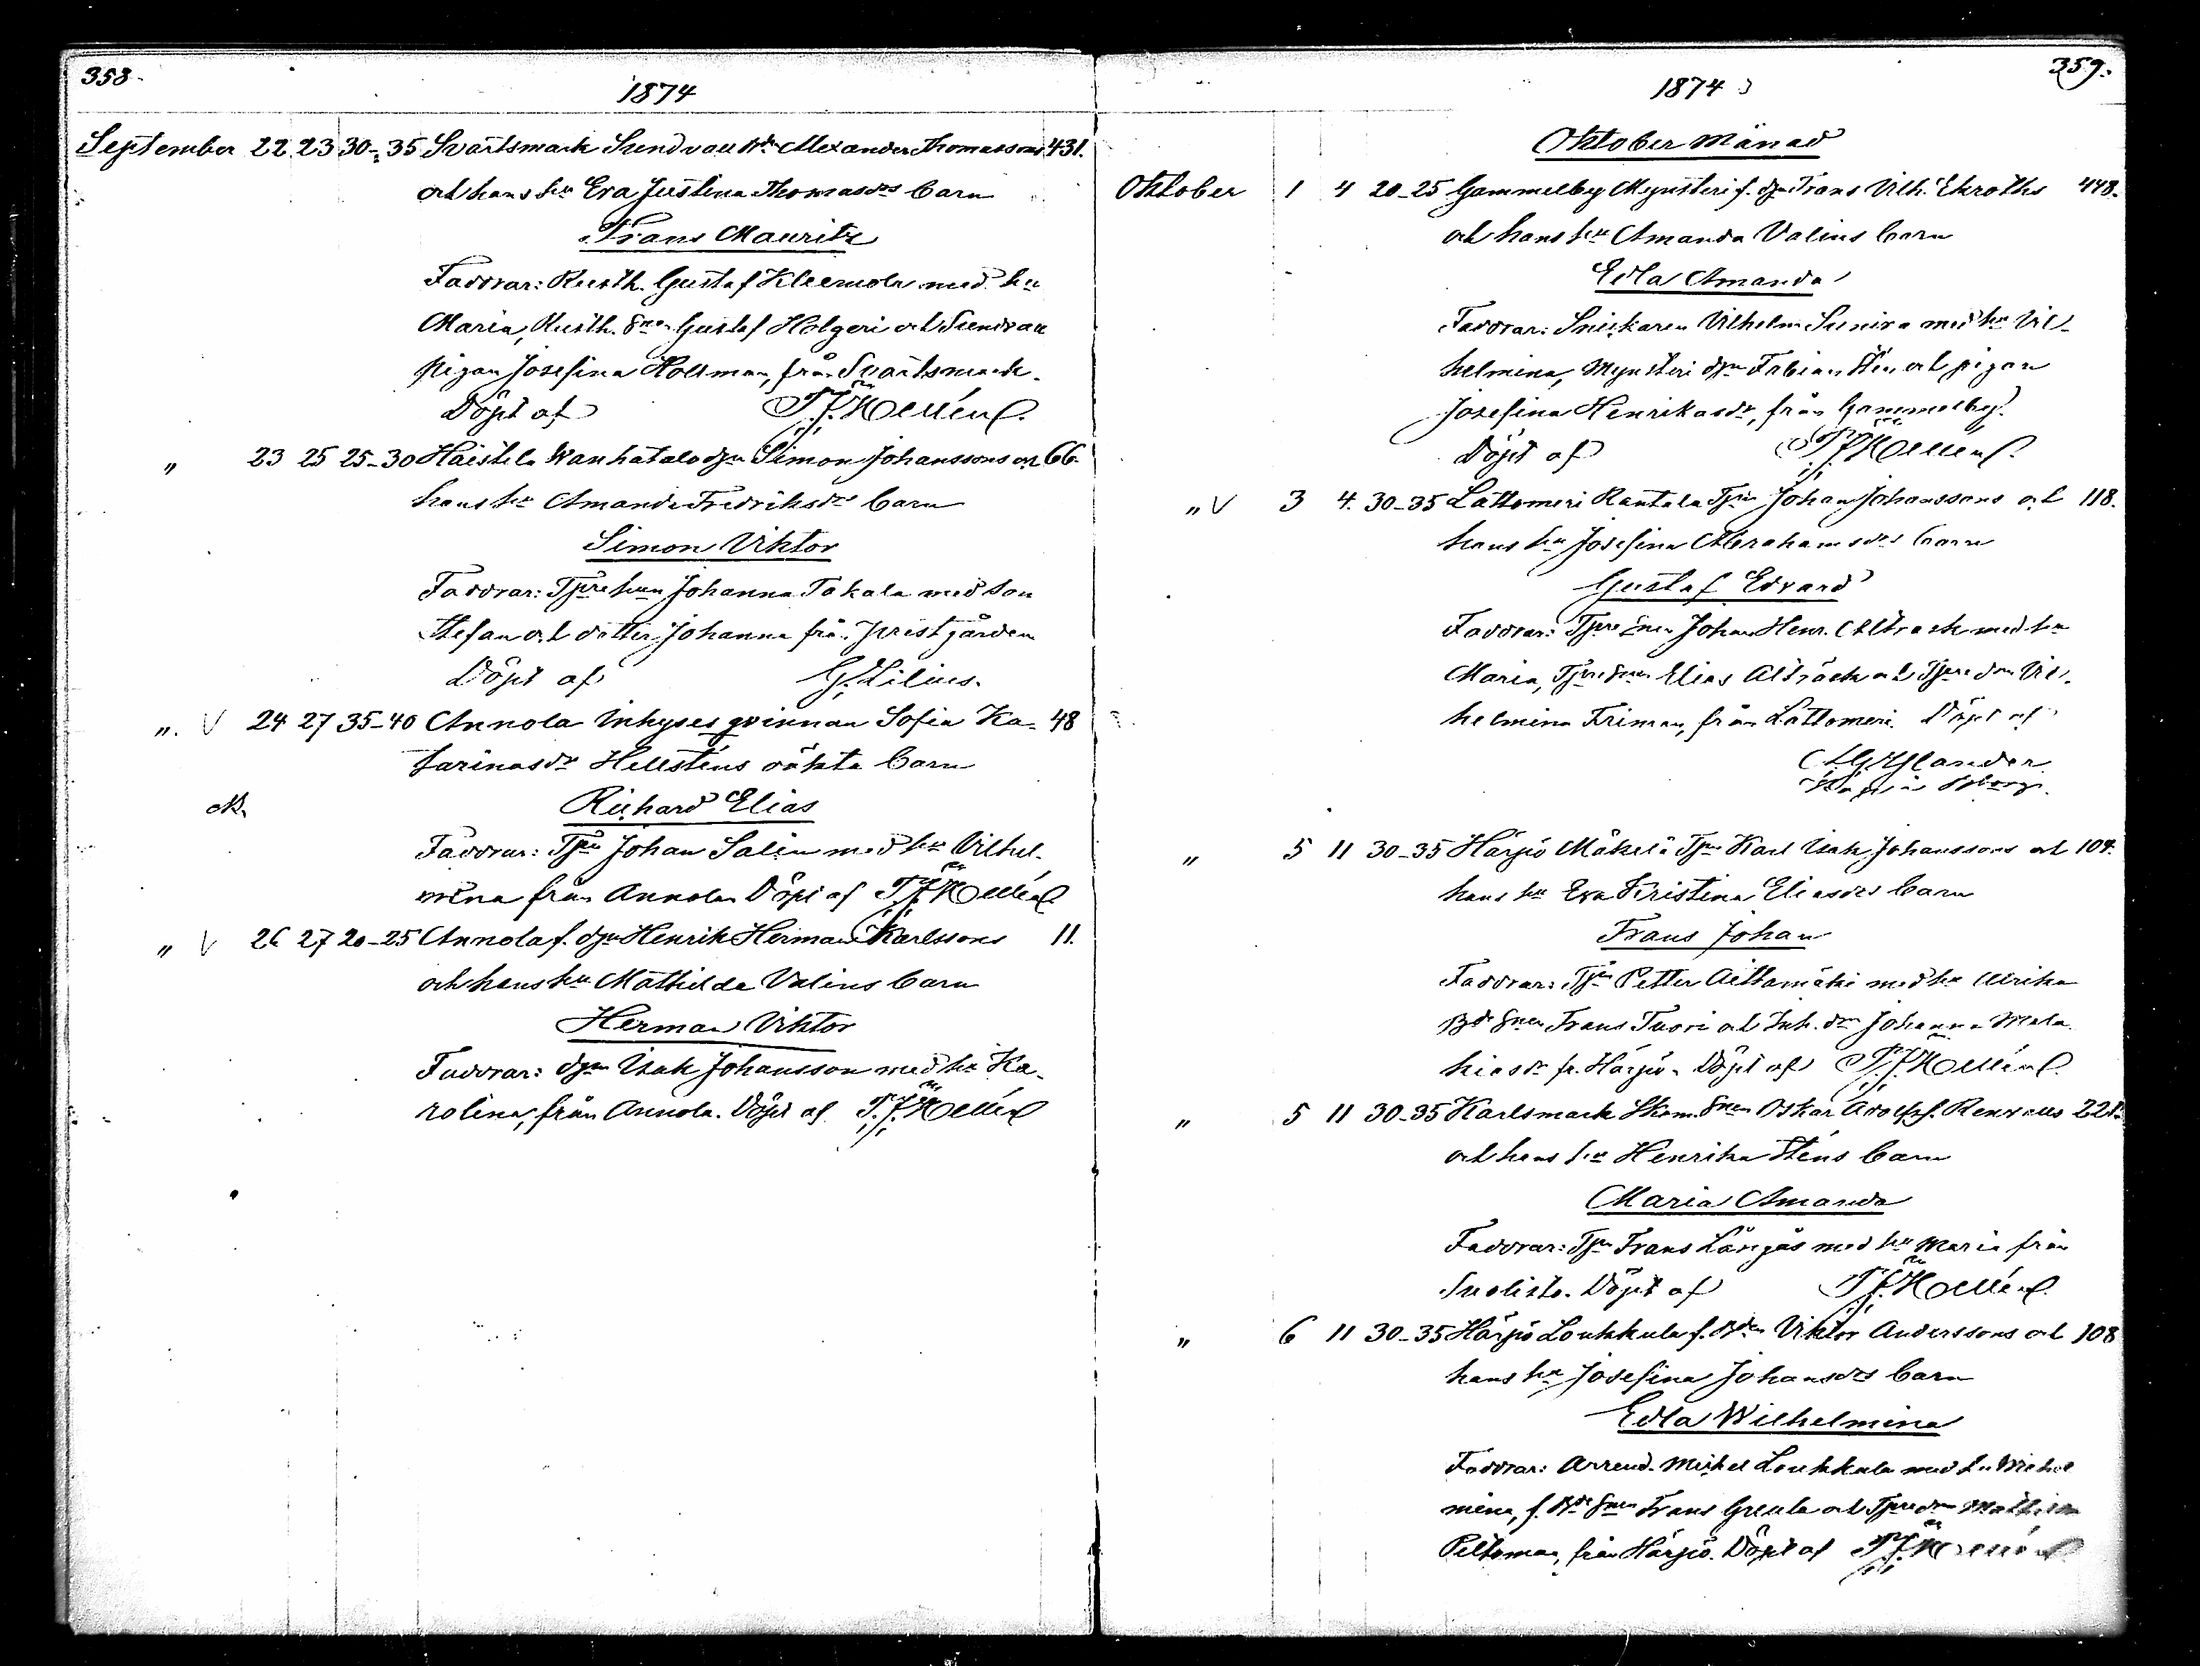 358.
1874
September 22 23 30-35 Svartsmark Sundvall Bdn Alexander Thomassons 431.
och hans hu Eva Justina Thomasdrs barn
Frans Mauritz
Faddrar: Rusth. Gustaf Kleemola med hu
Maria, Rusth. Snn Gustaf Holgeri och Sundvall
pigan Josefina Holtman, från Svartsmark.
Döpt af T. J. Hellén
" 23 25 25-30 Haistila Wanhatalo dgn Simon Johanssons och 66
hans hu Amanda Fredriksdrs barn
Simon Viktor
Faddrar: Tprehun Johanna Takala med son
Stefan och dotter Johanna från Prestgården
Döpt af G. Lilius.
" V 24 27 35-40 Annola Inhyses qvinnan Sofia Ka- 48
tarinasdr Hellsténs oäkta barn
NB. Richard Elias
Faddrar: Tpn Johan Salin med hu Vilhel-
mina från Annola. Döpt af T. J. Hellén
" V 26 27 20-25 Annola f. dgn Henrik Herman Karlssons 11.
och hans hu Mathilda Valins barn
Herman Viktor
Faddrar: dgn Isak Johansson med hu Ka-
rolina, från Annola. Döpt af T. J. Hellén
359.
1874
Oktober Månad
Oktober 1 4 20-25 Gammelby Mynsteri f. dgn Frans Vilh. Ekroths 448.
och hans hu Amanda Valins barn
Edla Amanda
Faddrar: Snickaren Vilhelm Sunira med hu Vil-
helmina, Mynsteri dgn Fabian Stén och pigan
Josefina Henriksdr, från Gammelby.
Döpt af T. J. Hellén
" V 3 4. 30-35 Lattomeri Rantala Tpn Johan Johanssons och 118.
hans hu Josefina Abrahamsdrs barn
Gustaf Edvard
Faddrar: Tpre Snn Johan Henr. Alträsk med hu
Maria, Tpre Snn Elias Alträsk och Tpre dn Vil-
helmina Friman, från Lattomeri. Döpt af
Nylander
" 5 11 30-35 Harjis Mäkelä Tpn Karl Isak Johanssons och 104.
hans hu Eva Kristina Eliasdrs barn
Frans Johan
Faddrar: Tpn Petter Aittamäki med hu Ulrika
Bde Snn Frans Tuori och Inh. dn Johanna Mala-
kiasdr fr. Harjis. Döpt af T. J. Hellén
" 5 11 30-35 Karlsmark Skom. Snn Oskar Adolf f. Renvalls 221.
och hans hu Henrika Sténs barn
Maria Amanda
Faddrar: Tpn Frans Långås med hu Maria från
Suolisto. Döpt af T. J. Hellén
" 6 11 30-35 Harjis Loukkula f. Bdn Viktor Anderssons och 108
hans hu Josefina Johansdrs barn
Edla Wilhelmina
Faddrar: Arrend. Mickel Loukkula med hu Wilhel
mina, f. Bde Snn Frans Greula och Tpre dn
Peltoman, från Harjis. Döpt af T. J. Hellén